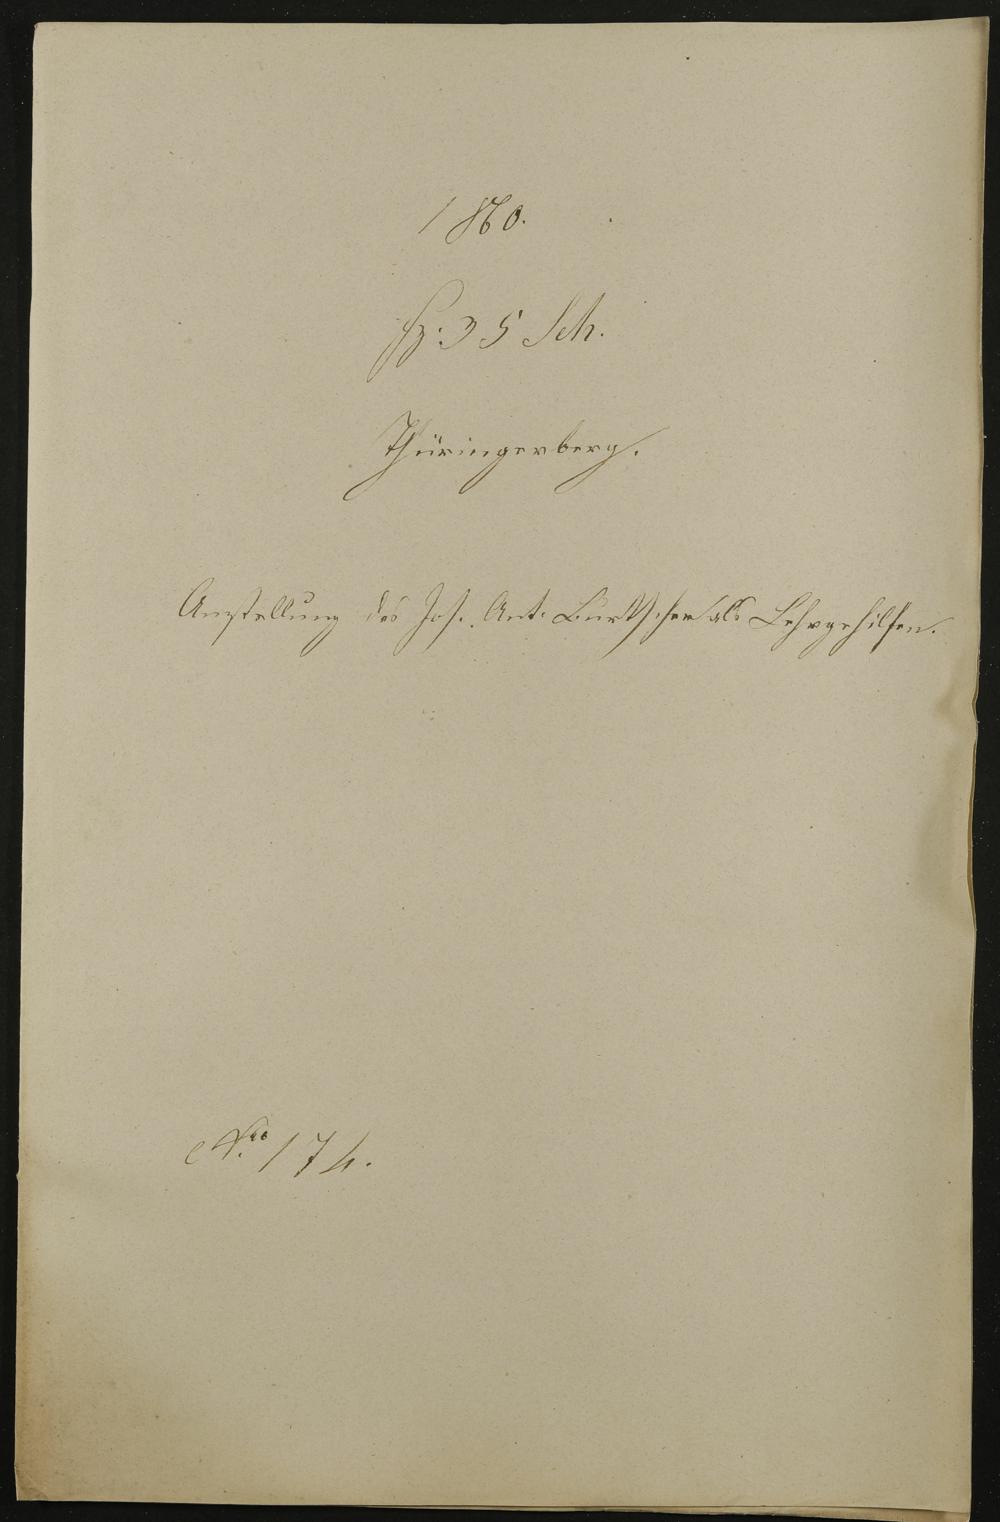 1860.
Fz: 35 Sch.
Thüringerberg.
Anstellung des Jos. Ant. Burtscher als Lehrgehilfen.
No. 174.